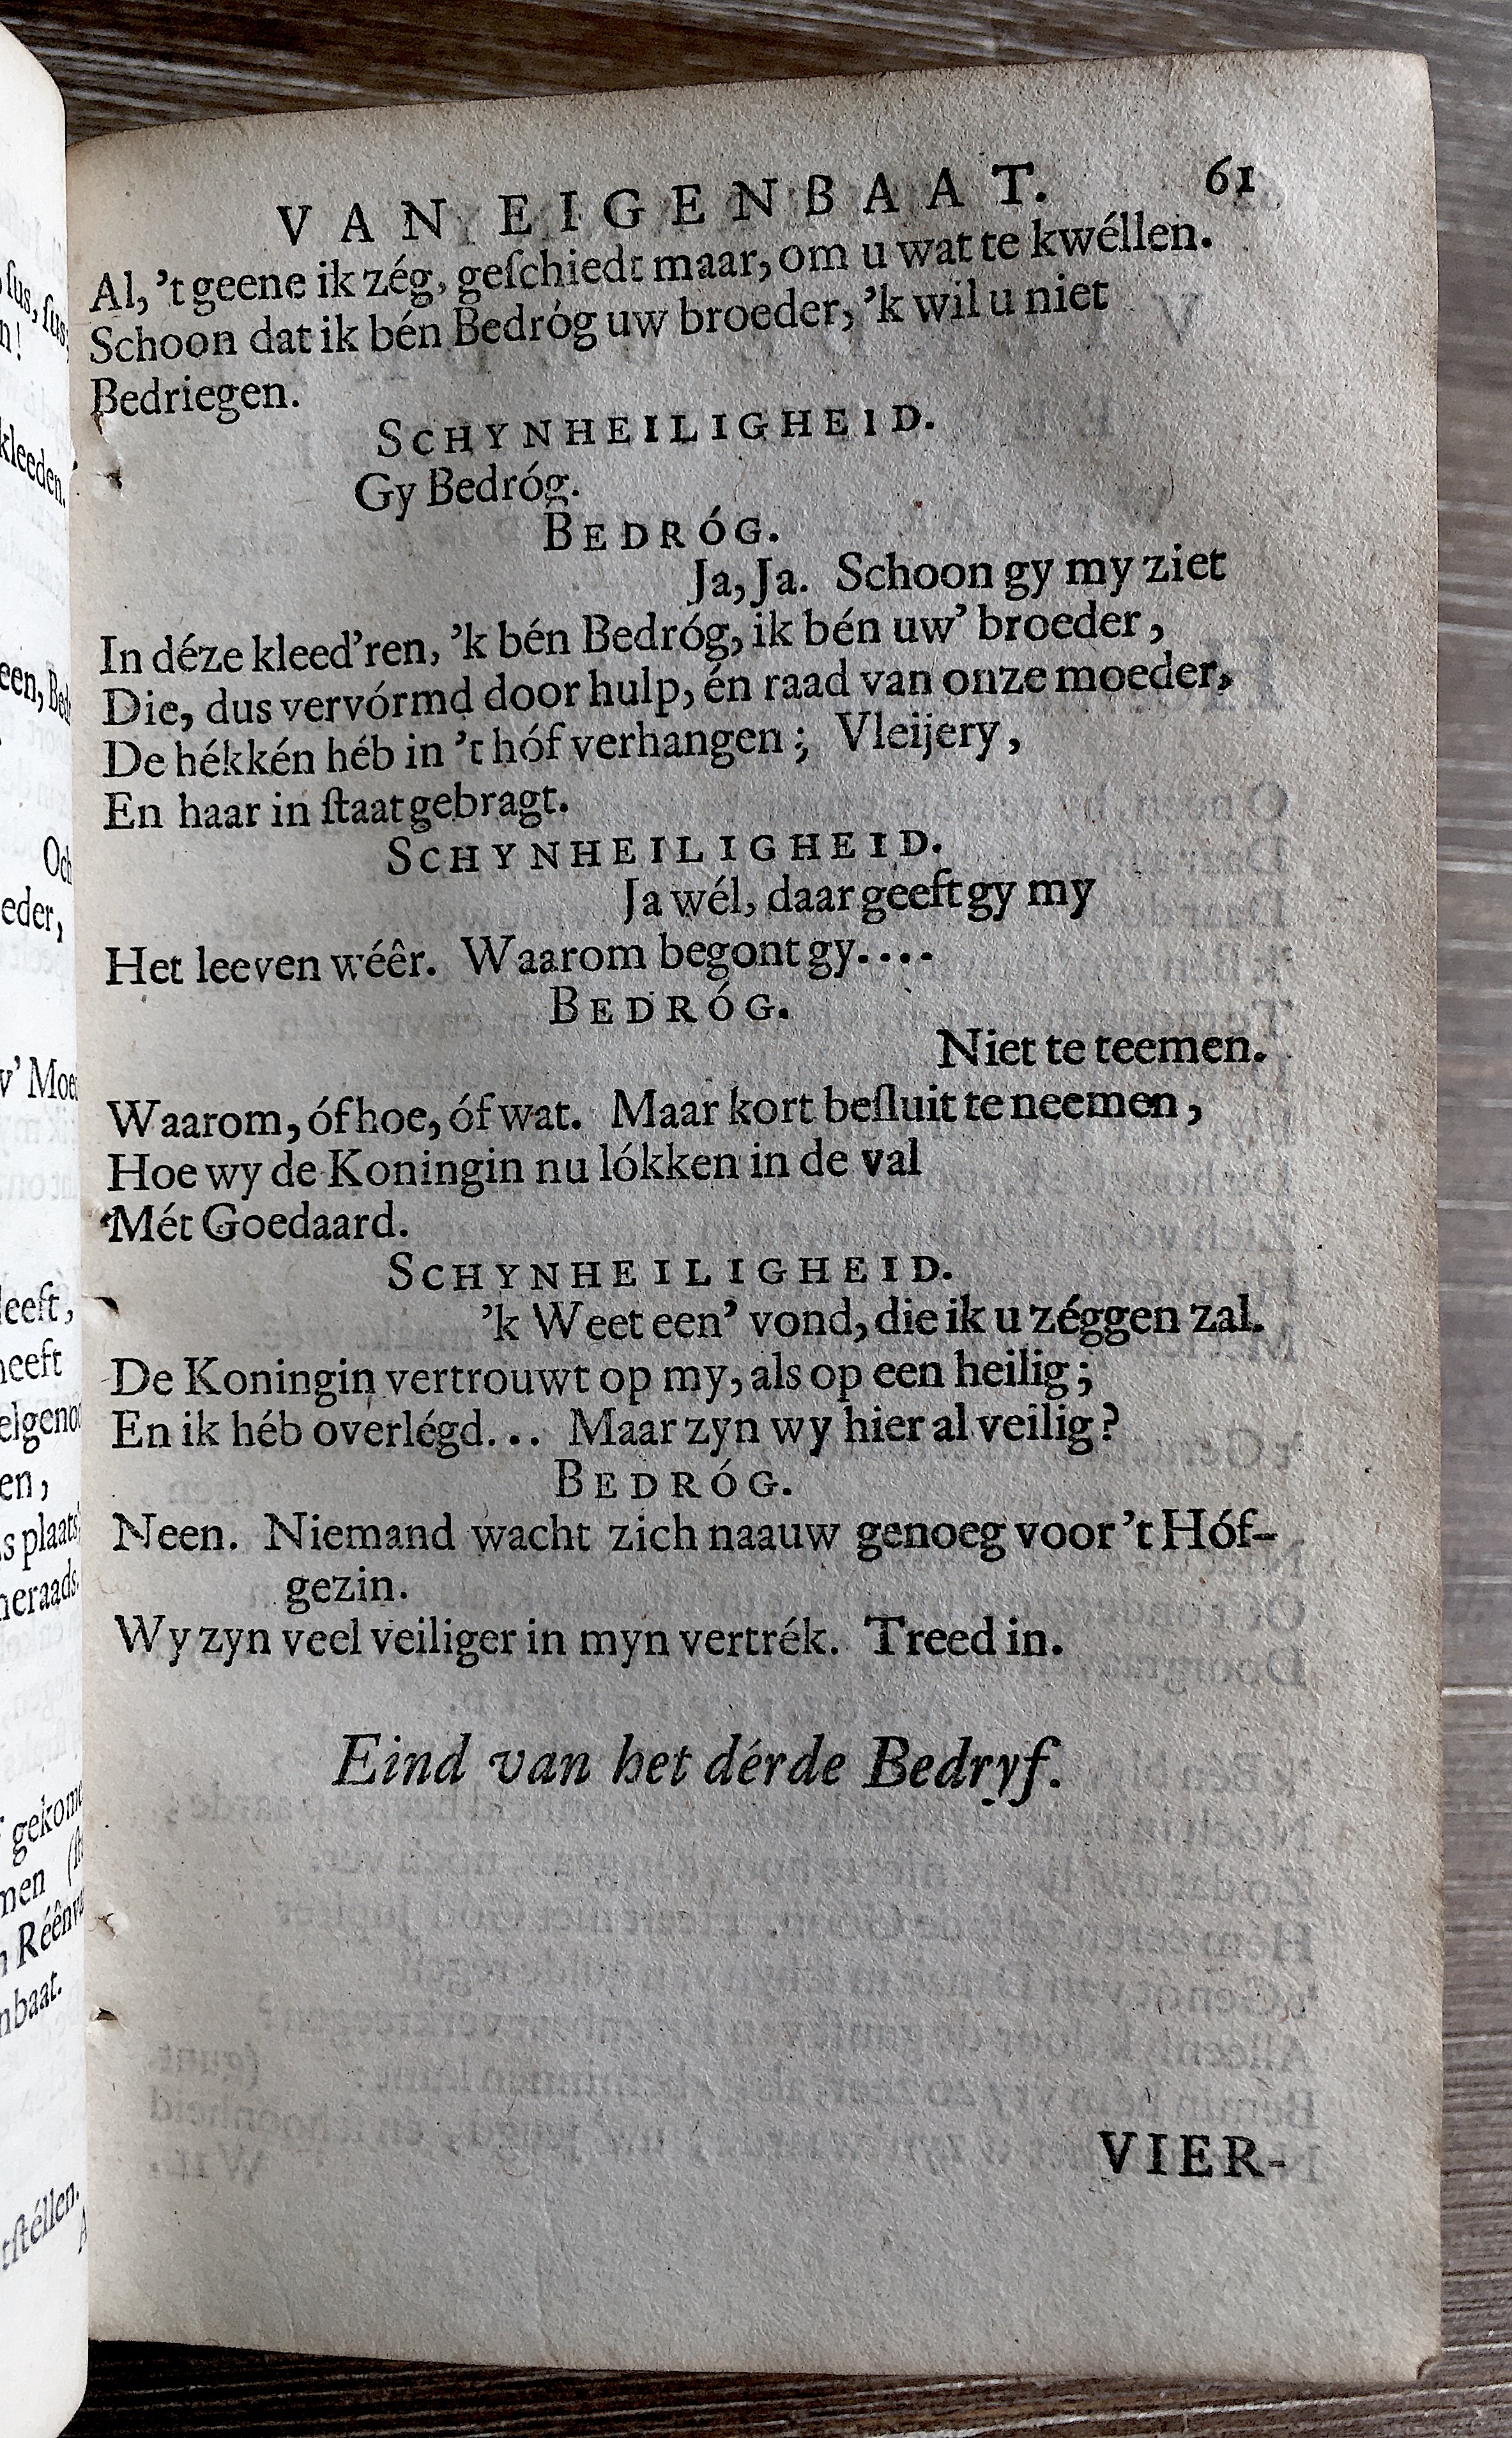 VAN EIGENBAAT. 61
Al, 't geene ik zég, geſchiedt maar, om u wat te kwéllen.
Schoon dat ik bén Bedróg uw broeder, 'k wil u niet
Bedriegen.
SCHYNHEILIGHEID.
Gy Bedróg.
BEDRÓG.
Ja, Ja. Schoon gy my ziet
In déze kleed'ren, 'k bén Bedróg, ik bén uw' broeder,
Die, dus vervórmd door hulp, én raad van onze moeder,
De hékkén héb in 't hóf verhangen; Vleijery,
En haar in ſtaat gebragt.
SCHYNHEILIGHEID.
Ja wél, daar geeft gy my
Het leeven wéêr. Waarom begont gy....
BEDRÓG.
Niet te teemen.
Waarom, óf hoe, óf wat. Maar kort beſluit te neemen,
Hoe wy de Koningin nu lókken in de val
Mét Goedaard.
SCHYNHEILIGHEID.
'k Weet een' vond, die ik u zéggen zal.
De Koningin vertrouwt op my, als op een heilig;
En ik héb overlégd... Maar zyn wy hier al veilig?
BEDRÓG.
Neen. Niemand wacht zich naauw genoeg voor 't Hóf-
gezin.
Wy zyn veel veiliger in myn vertrék. Treed in.
Eind van het dérde Bedryf.
VIER-